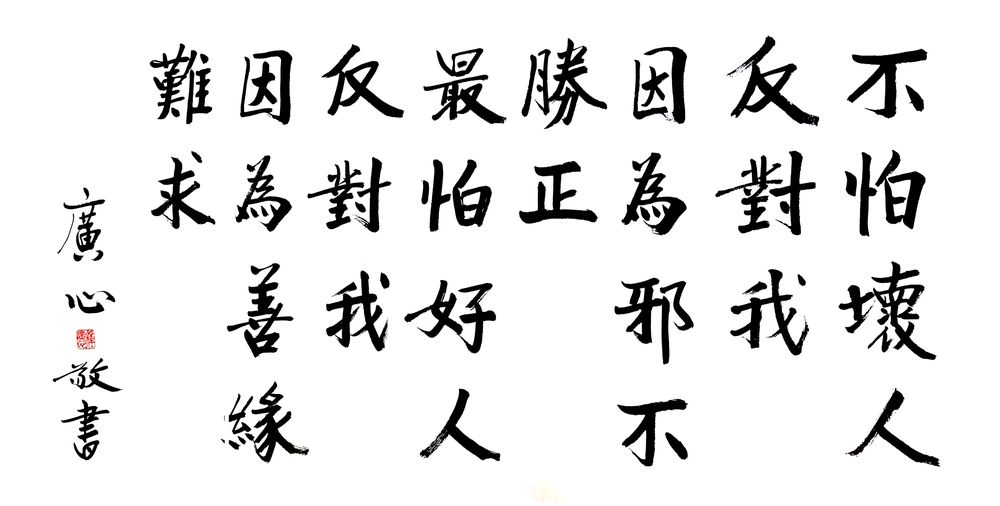 不怕壞人
反對我
因為邪不
勝正
最怕好人
反對我
因為善緣
難求
廣心敬書